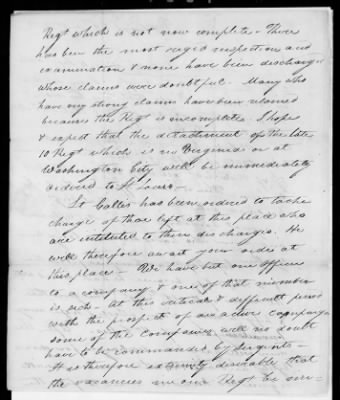 Regt which is not now complete. There
has been the most rigid inspection and
examination & none have been discharged
whose claims were doubtful. Many who
have very strong claims have been retained
because the Regt is incomplete. I hope
& expect that the detachment of the late
10 Regt which is in Virginia or at
Washington City will be immediately
ordered to St Louis—
Lt Galles has been ordered to take
charge of those left at this place who
are intitled to their discharges. He
will therefore await your order at
this place— We have but one officer
to a company & one of that number
is sick. At this critical & difficult period
with the prospect of an active campaign
some of the Companies will no doubt
have to be commanded by Sergents—
It is therefore extremely desirable that
the vacancies in our Regt be